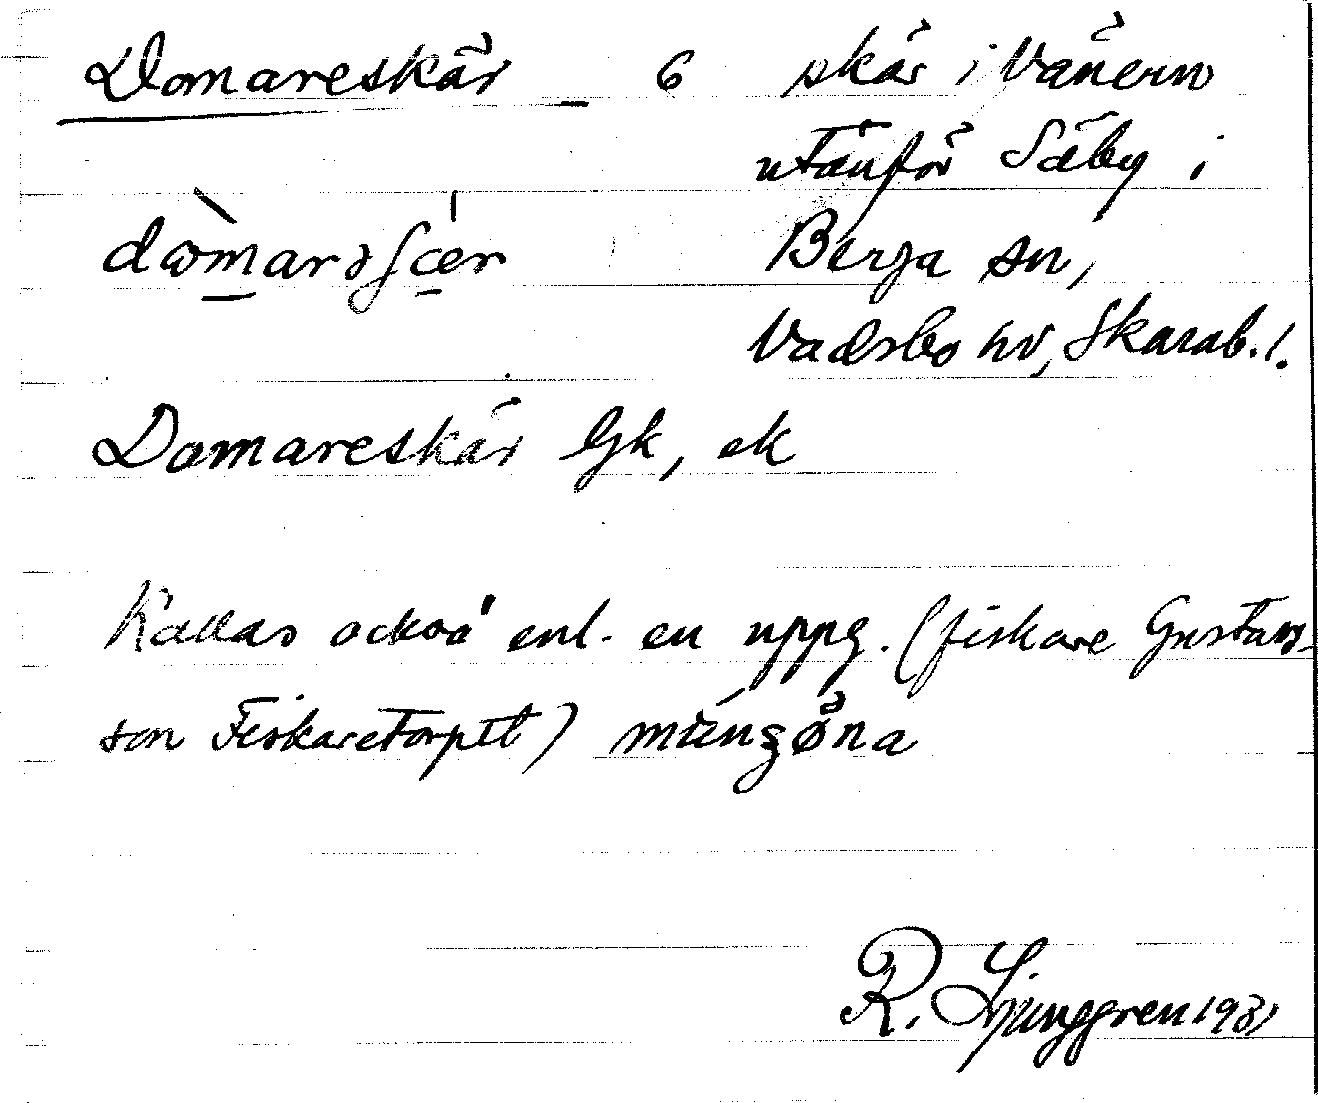 Domareskär - 6 skär i Vänern
utanför Säby i
dωmarəʃær Berga sn,
Vadsbo hd, Skarab.l.
Domareskär Gk, ek
Kallas också enl. en uppg. (fiskare Gustavs-
son Fiskaretorpet)
R. Ljunggren 1931